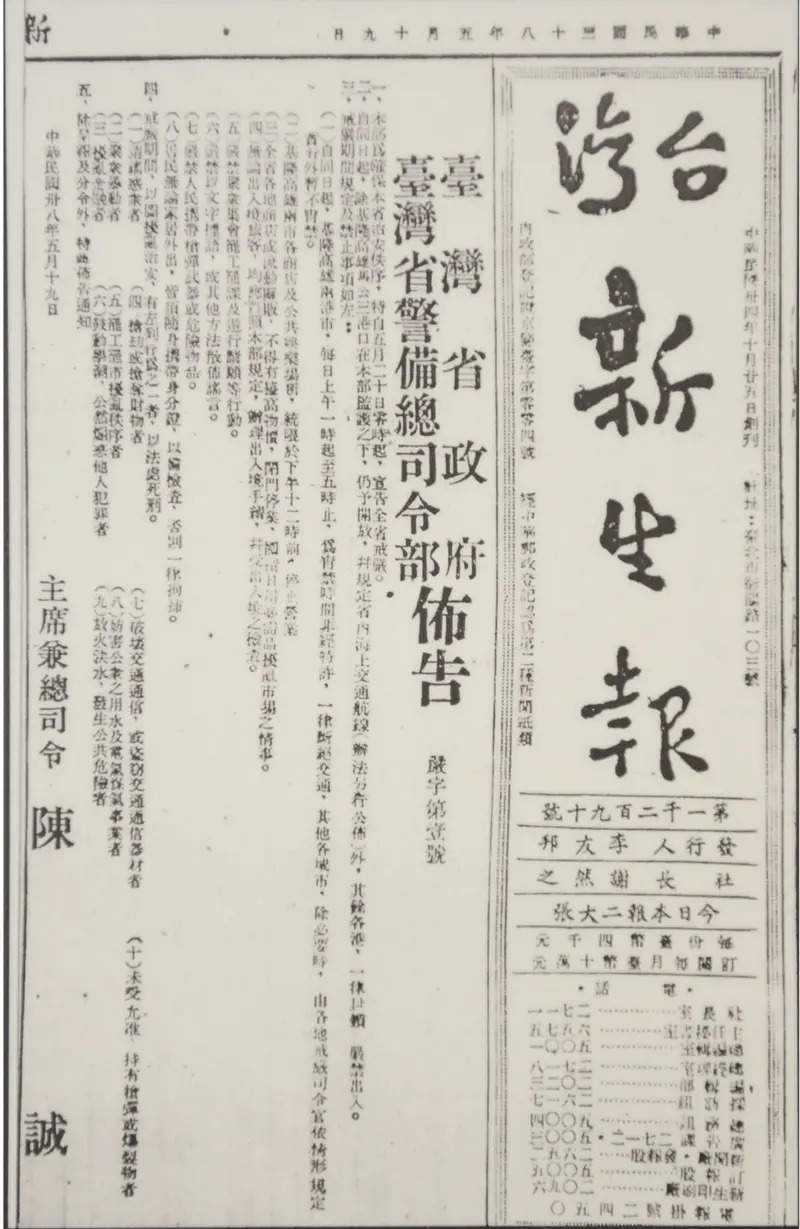 中華民國三十八年五月十九日
新
台灣新生報
中華民國卅四年十月廿五日創刊
社址：臺北市衡陽路一〇三號
內政部登記證京警臺字第零零四號
經中華郵政登記認爲第二種新聞紙類
第一千二百九十號
發行人 李友邦
社長 謝然之
今日本報二大張
每份臺幣四千元
訂閱每月臺幣十萬元
・電話・
社長室……二七一一
主任秘書室……六五七五
總編輯室……五〇〇一
總經理室……二七一八
編輯部……二〇二三
採訪組……二六一七
五〇〇四
廣告課 二七一二・五〇〇三
發報股……二六五二
訂報股……五〇〇五
新生印刷廠……二〇九六
電報掛號二四五〇
臺灣省政府
臺灣省警備總司令部
佈告
嚴字第壹號
一、本部爲確保本省治安秩序，特自五月二十日零時起，宣告全省戒嚴。
二、自同日起，除基隆高雄馬公三港口在本部監護之下，仍予開放，幷規定省內海上交通航線（辦法另行公佈）外，其餘各港，一律封鎖 嚴禁出入。
三、戒嚴期間規定及禁止事項如左：
（一）自同日起，基隆高雄兩港市，每日上午一時起至五時止，爲宵禁時間非經特許，一律斷絕交通，其他各城市，除必要時，由各地戒嚴司令官依情形規定
實行外暫不宵禁。
（二）基隆高雄兩市各商店及公共娛樂場所，統限於下午十二時前，停止營業
（三）全省各地商店或流動攤販，不得有擡高物價，閉門停業，囤積日用必需品擾亂市場之情事。
（四）無論出入境旅客，均應遵照本部規定，辦理出入境手續，幷受出入境之檢查。
（五）嚴禁聚衆集會罷工罷課及遊行請願等行動。
（六）嚴禁以文字標語，或其他方法散佈謠言。
（七）嚴禁人民攜帶槍彈武器或危險物品。
（八）居民無論家居外出，皆須隨身攜帶身分證，以備檢查，否則一律拘捕。
四、戒嚴期間，以圖擾亂治安，有左列行爲之一者，以法處死刑。
（一）造謠惑衆者
（二）聚衆暴動者
（三）擾亂金融者
（四）搶劫或搶奪財物者
（五）罷工罷市擾亂秩序者
（六）鼓動學潮，公然煽惑他人犯罪者
（七）破壞交通通信，或盜竊交通通信器材者
（八）妨害公衆之用水及電氣煤氣事業者
（九）放火決水，發生公共危險者
（十）未受允准，持有槍彈或爆裂物者
五、除呈報及分令外，特此佈告通知
中華民國卅八年五月十九日
主席兼總司令 陳誠